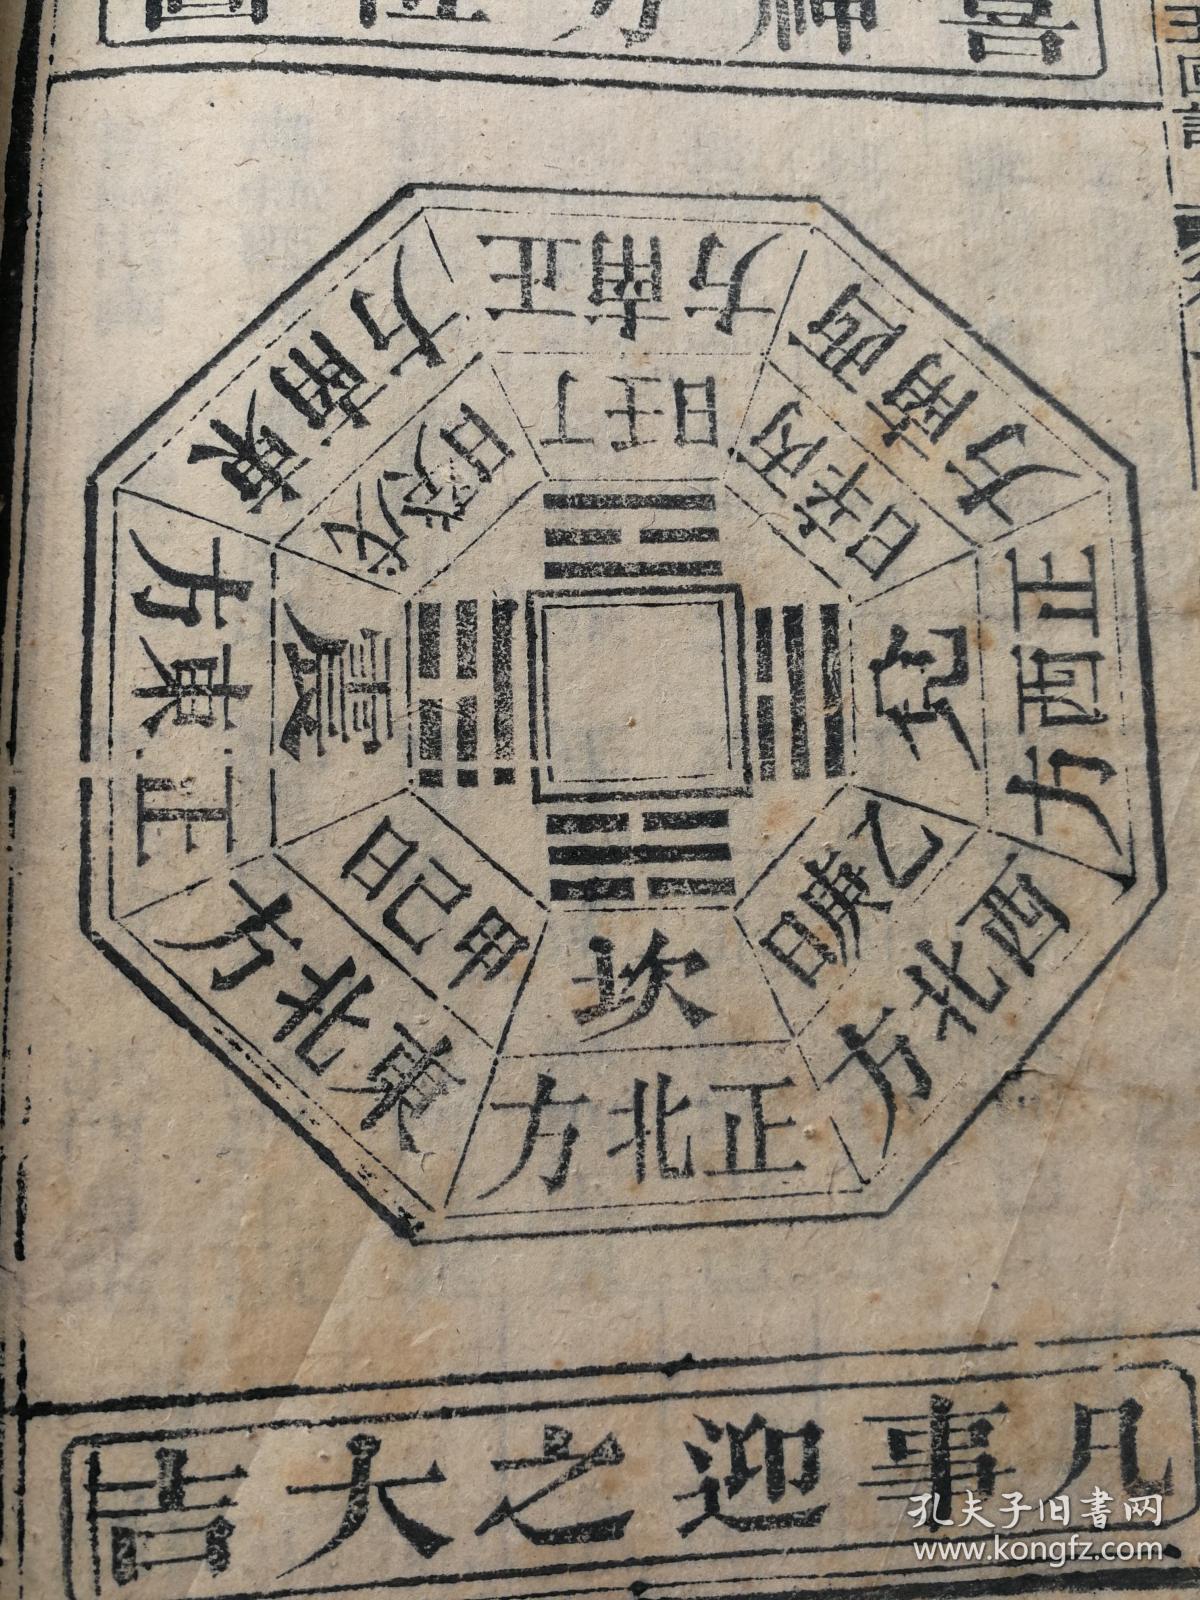 喜神方位圖
正南方
丁壬日
西南方
丙辛日
正西方
兌
西北方
乙庚日
正北方
坎
東北方
甲己日
正東方
震
東南方
戊癸日
凡事迎之大吉
孔夫子旧書网
www.kongfz.com